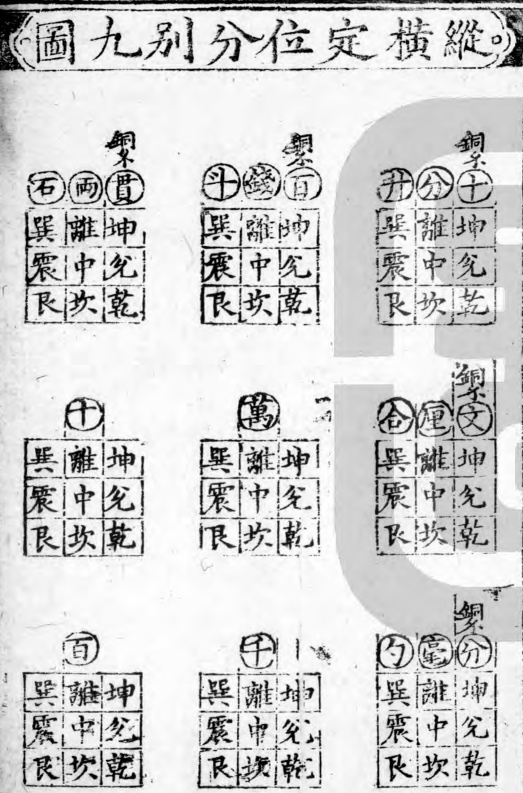 縱橫定位分別九圖
銅
十坤兊乾
分離中坎
升巽震艮
銅
文坤兊乾
厘離中坎
合巽震艮
銅
分坤兊乾
毫離中坎
勺巽震艮
銅
百坤兊乾
錢離中坎
斗巽震艮
坤兊乾
萬離中坎
巽震艮
坤兊乾
千離中坎
巽震艮
銅
貫坤兊乾
両離中坎
石巽震艮
坤兊乾
十離中坎
巽震艮
坤兊乾
百離中坎
巽震艮